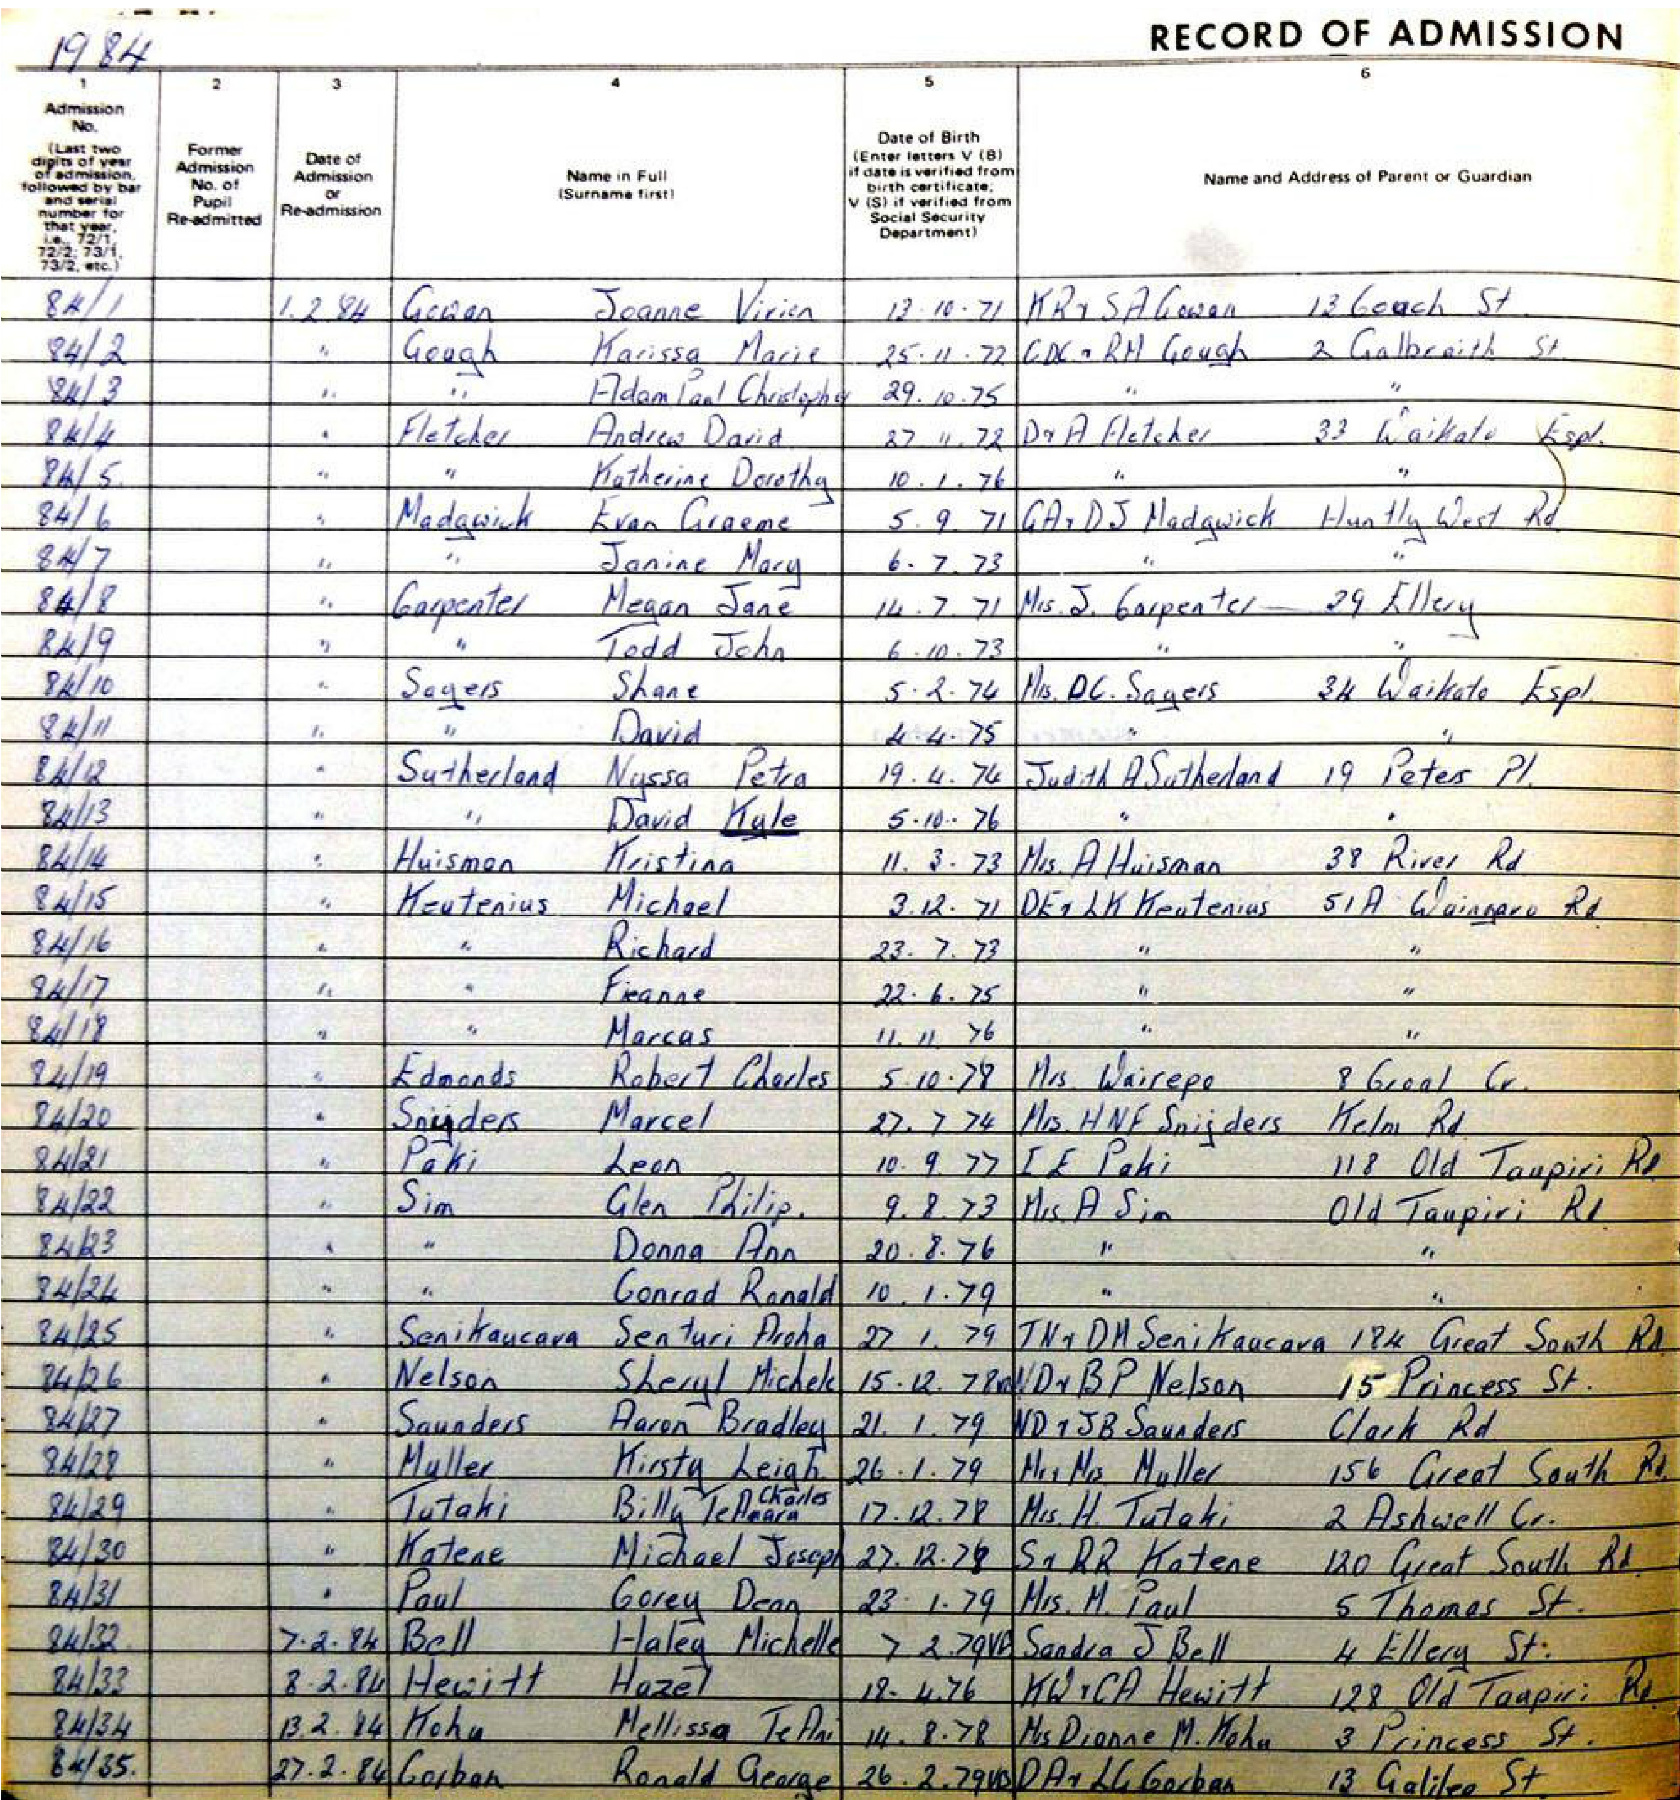 1984
RECORD OF ADMISSION
1 2 3 4 5 6
Admission No. (Last two digits of year of admission, followed by bar and serial number for that year, i.e., 72/1, 72/2; 73/1, 73/2, etc.)
Former Admission No. of Pupil Re-admitted
Date of Admission or Re-admission
Name in Full (Surname first)
Date of Birth (Enter letters V (B) if date is verified from birth certificate; V (S) if verified from Social Security Department)
Name and Address of Parent or Guardian
84/1 1.2.84 Gowan Joanne Virien 13.10.71 KR & SA Gowan 13 Geach St
84/2 " Gough Karissa Marie 25.11.72 CDC & RM Gough 2 Galbraith St
84/3 " " Adam Paul Christopher 29.10.75 " "
84/4 " Fletcher Andrew David 27.11.72 D & A Fletcher 33 Waikato Espl.
84/5 " " Katherine Dorothy 10.1.76 " "
84/6 " Madgwick Evan Graeme 5.9.71 GA & DJ Madgwick Huntly West Rd
84/7 " " Janine Mary 6.7.73 " "
84/8 " Carpenter Megan Jane 14.7.71 Mrs. J. Carpenter 29 Ellery
84/9 " " Todd John 6.10.73 " "
84/10 " Sagers Shane 5.2.74 Mrs. DC. Sagers 34 Waikato Espl.
84/11 " " David 4.4.75 " "
84/12 " Sutherland Nyssa Petra 19.4.74 Judith A Sutherland 19 Peters Pl.
84/13 " " David Kyle 5.10.76 " "
84/14 " Huisman Kristina 11.3.73 Mrs. A Huisman 38 River Rd
84/15 " Keutenius Michael 3.12.71 DE & LK Keutenius 51A Waingaro Rd
84/16 " " Richard 23.7.73 " "
84/17 " " Fieanne 22.6.75 " "
84/18 " " Marcas 11.11.76 " "
84/19 " Edmonds Robert Charles 5.10.78 Mrs. Wairepo 8 Croal Cr.
84/20 " Snijders Marcel 27.7.74 Mrs. HNF Snijders Kelm Rd
84/21 " Paki Leon 10.9.77 I E Paki 118 Old Taupiri Rd
84/22 " Sim Glen Philip. 9.8.73 Mrs. A Sim Old Taupiri Rd
84/23 " " Donna Ann 20.8.76 " "
84/24 " " Conrad Ronald 10.1.79 " "
84/25 " Senikaucava Senturi Aroha 27.1.79 TN & DM Senikaucava 184 Great South Rd
84/26 " Nelson Sheryl Michele 15.12.78 ND & BP Nelson 15 Princess St.
84/27 " Saunders Aaron Bradley 21.1.79 ND & JB Saunders Clark Rd
84/28 " Muller Kirsty Leigh 26.1.79 Mr & Mrs Muller 156 Great South Rd
84/29 " Tutaki Billy TeAmara Charles 17.12.78 Mrs. H. Tutaki 2 Ashwell Cr.
84/30 " Katene Michael Joseph 27.12.78 S & RR Katene 120 Great South Rd
84/31 " Paul Corey Dean 23.1.79 Mrs. M. Paul 5 Thomas St.
84/32 7.2.84 Bell Haley Michelle 7.2.79VB Sandra J Bell 4 Ellery St.
84/33 8.2.84 Hewitt Hazel 18.4.76 KW & CA Hewitt 128 Old Taupiri Rd
84/34 13.2.84 Kohu Mellissa TeAni 14.8.78 Mrs Dianne M. Kohu 3 Princess St.
84/35. 27.2.84 Corban Ronald George 26.2.79VB DA & LG Corban 13 Galileo St